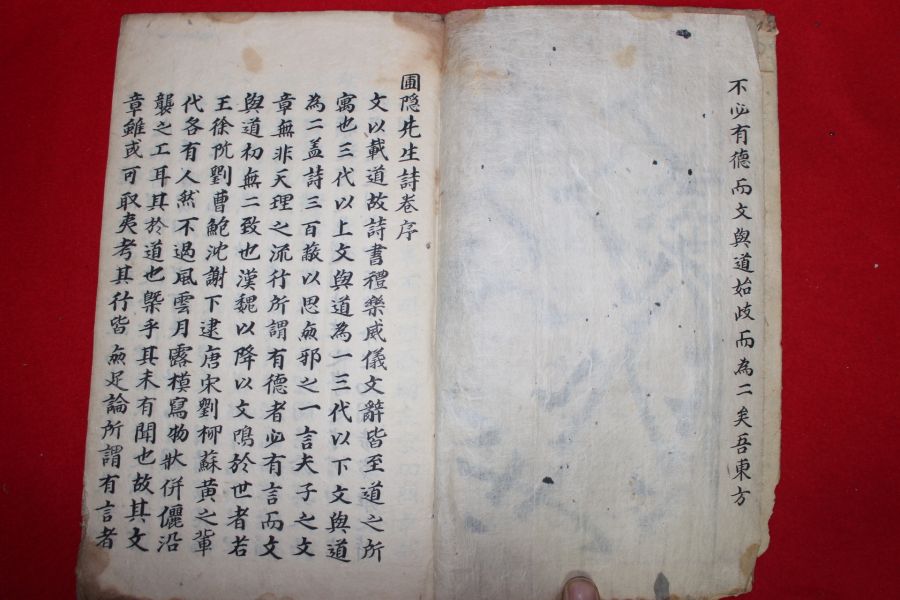 圃隠先生詩卷序
文以載道故詩書禮樂威儀文辭皆至道之所
寓也三代以上文與道為一三代以下文與道
為二盖詩三百蔽以思無邪之一言夫子之文
章無非天理之流行所謂有德者必有言而文
與道初無二致也漢魏以降以文鳴於世者若
王徐阮劉曹鮑沈謝下逮唐宋劉柳蘇黃之軰
代各有人然不過風雲月露模寫物狀併儷沿
襲之工耳其於道也槩乎其未有聞也故其文
章雖或可取夷考其行皆無足論所謂有言者
不必有德而文與道始歧而為二矣吾東方